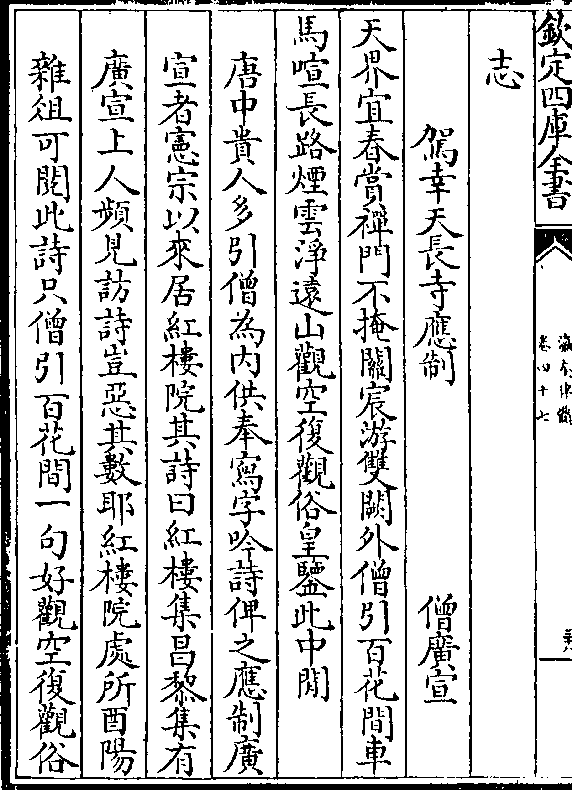 欽定四庫全書
瀛奎律髓
卷四十七
志
駕幸天長寺應制
僧廣宣
天界宜春賞禪門不掩關宸游雙闕外僧引百花間車
馬喧長路煙雲淨遠山觀空復觀俗皇鑒此中閒
唐中貴人多引僧為内供奉寫字吟詩俾之應制廣
宣者憲宗以來居紅樓院其詩曰紅樓集昌黎集有
廣宣上人頻見訪詩豈惡其數耶紅樓院處所酉陽
雜俎可閱此詩只僧引百花間一句好觀空復觀俗